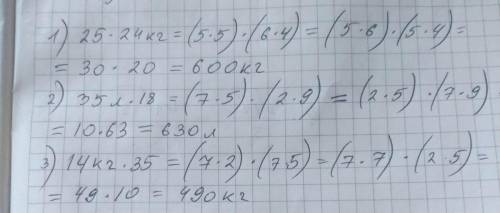 1) 25 · 24кг = (5·5) · (6·4) = (5·6) · (5·4) =
= 30 · 20 = 600кг
2) 35л · 18 = (7·5) · (2·9) = (2·5) · (7·9)
= 10·63 = 630л
3) 14кг · 35 = (7·2) · (7 5) = (7·7) · (2·5) =
= 49·10 = 490кг